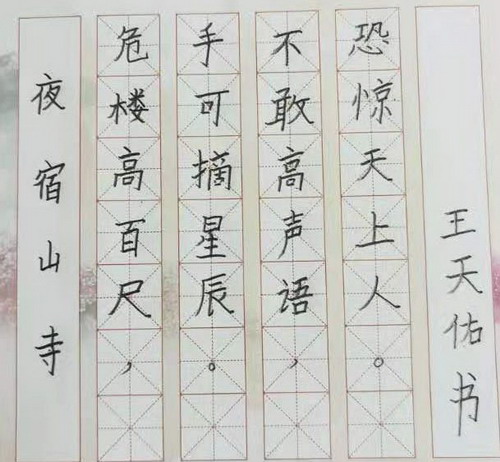 夜宿山寺
危楼高百尺，
手可摘星辰。
不敢高声语，
恐惊天上人。
王天佑书